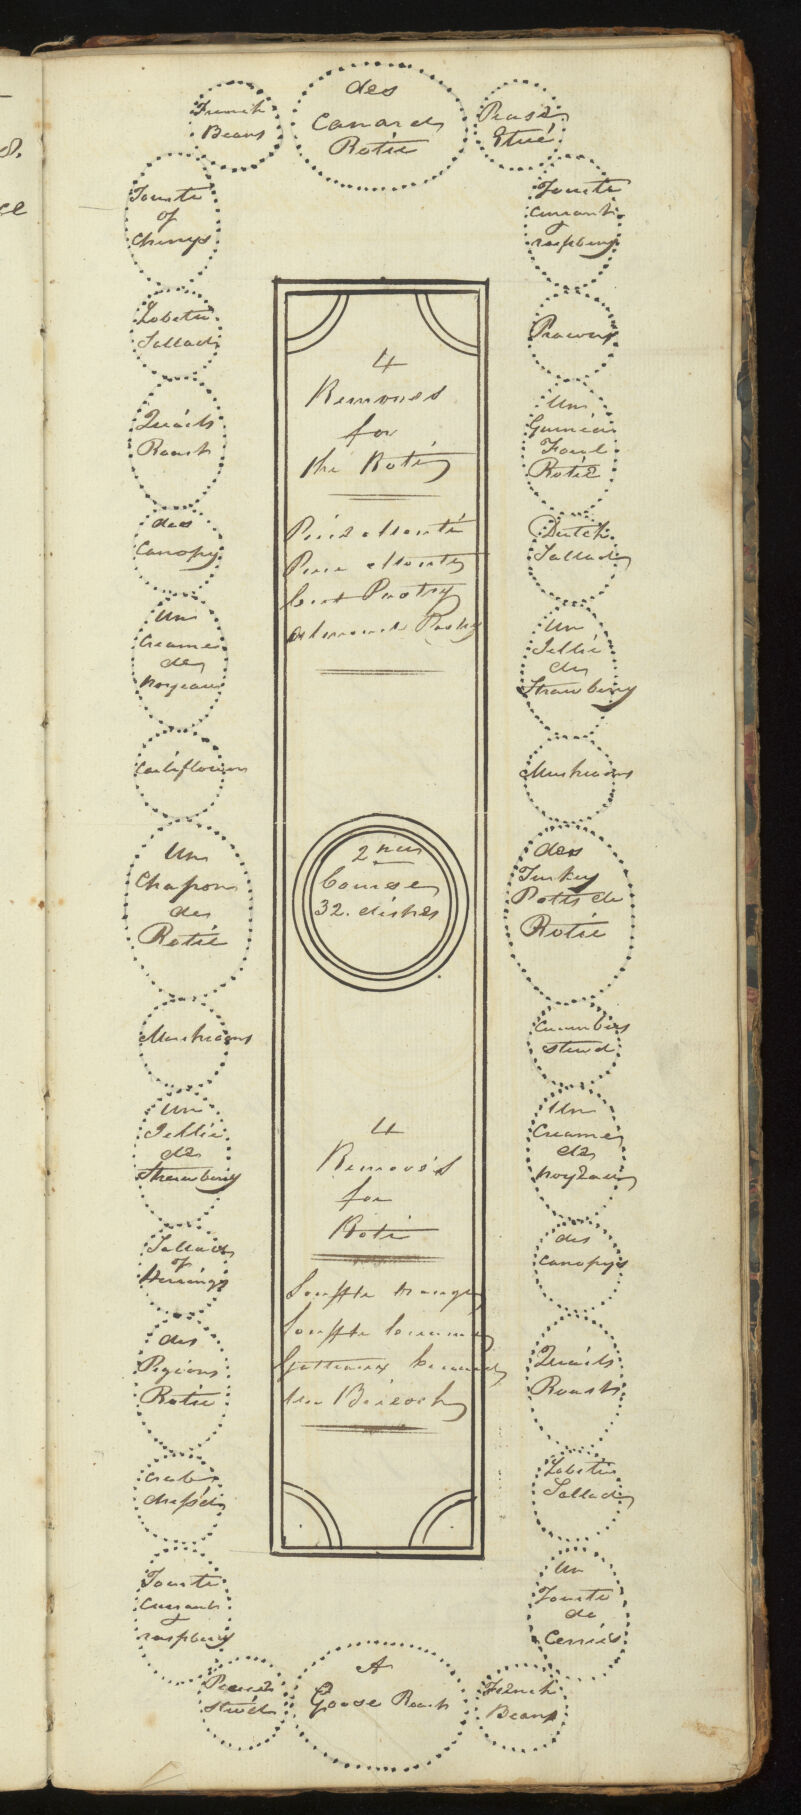 des
Canards
Rotié
French
Beans
Pease
Stué
Tourte
of
Cherrys
Tourte
currant
&
raspberry
Lobster
Sallad
Prawns
Quails
Roast
Un
Guinea
Fowl
Rotié
des
Canopy
Dutch
Sallad
Un
Creame
de
noyeau
Un
Jellie
de
Strawberry
Coliflowers
Mushrooms
Un
Chapon
de
Rotié
des
Turkey
Potts de
Rotié
Mushrooms
Cucumbers
stewd
Un
Jellie
de
Strawberry
Un
Creame
de
noyeau
Sallad
of
Herrings
des
canopys
des
Pigions
Rotie
Quails
Roast
Crab
dressd
Lobster
Sallad
Tourte
Currant
&
raspberry
Un
Tourte
de
Cerriés
Peases
Stwed
A
Goose Roast
French
Beans
4
Removes
for
the Roti
Pieze Monté
Montey
Pastry
4
Remové's
for
Roti
Souffle
Souffle
Un
2
Course
32. dishes